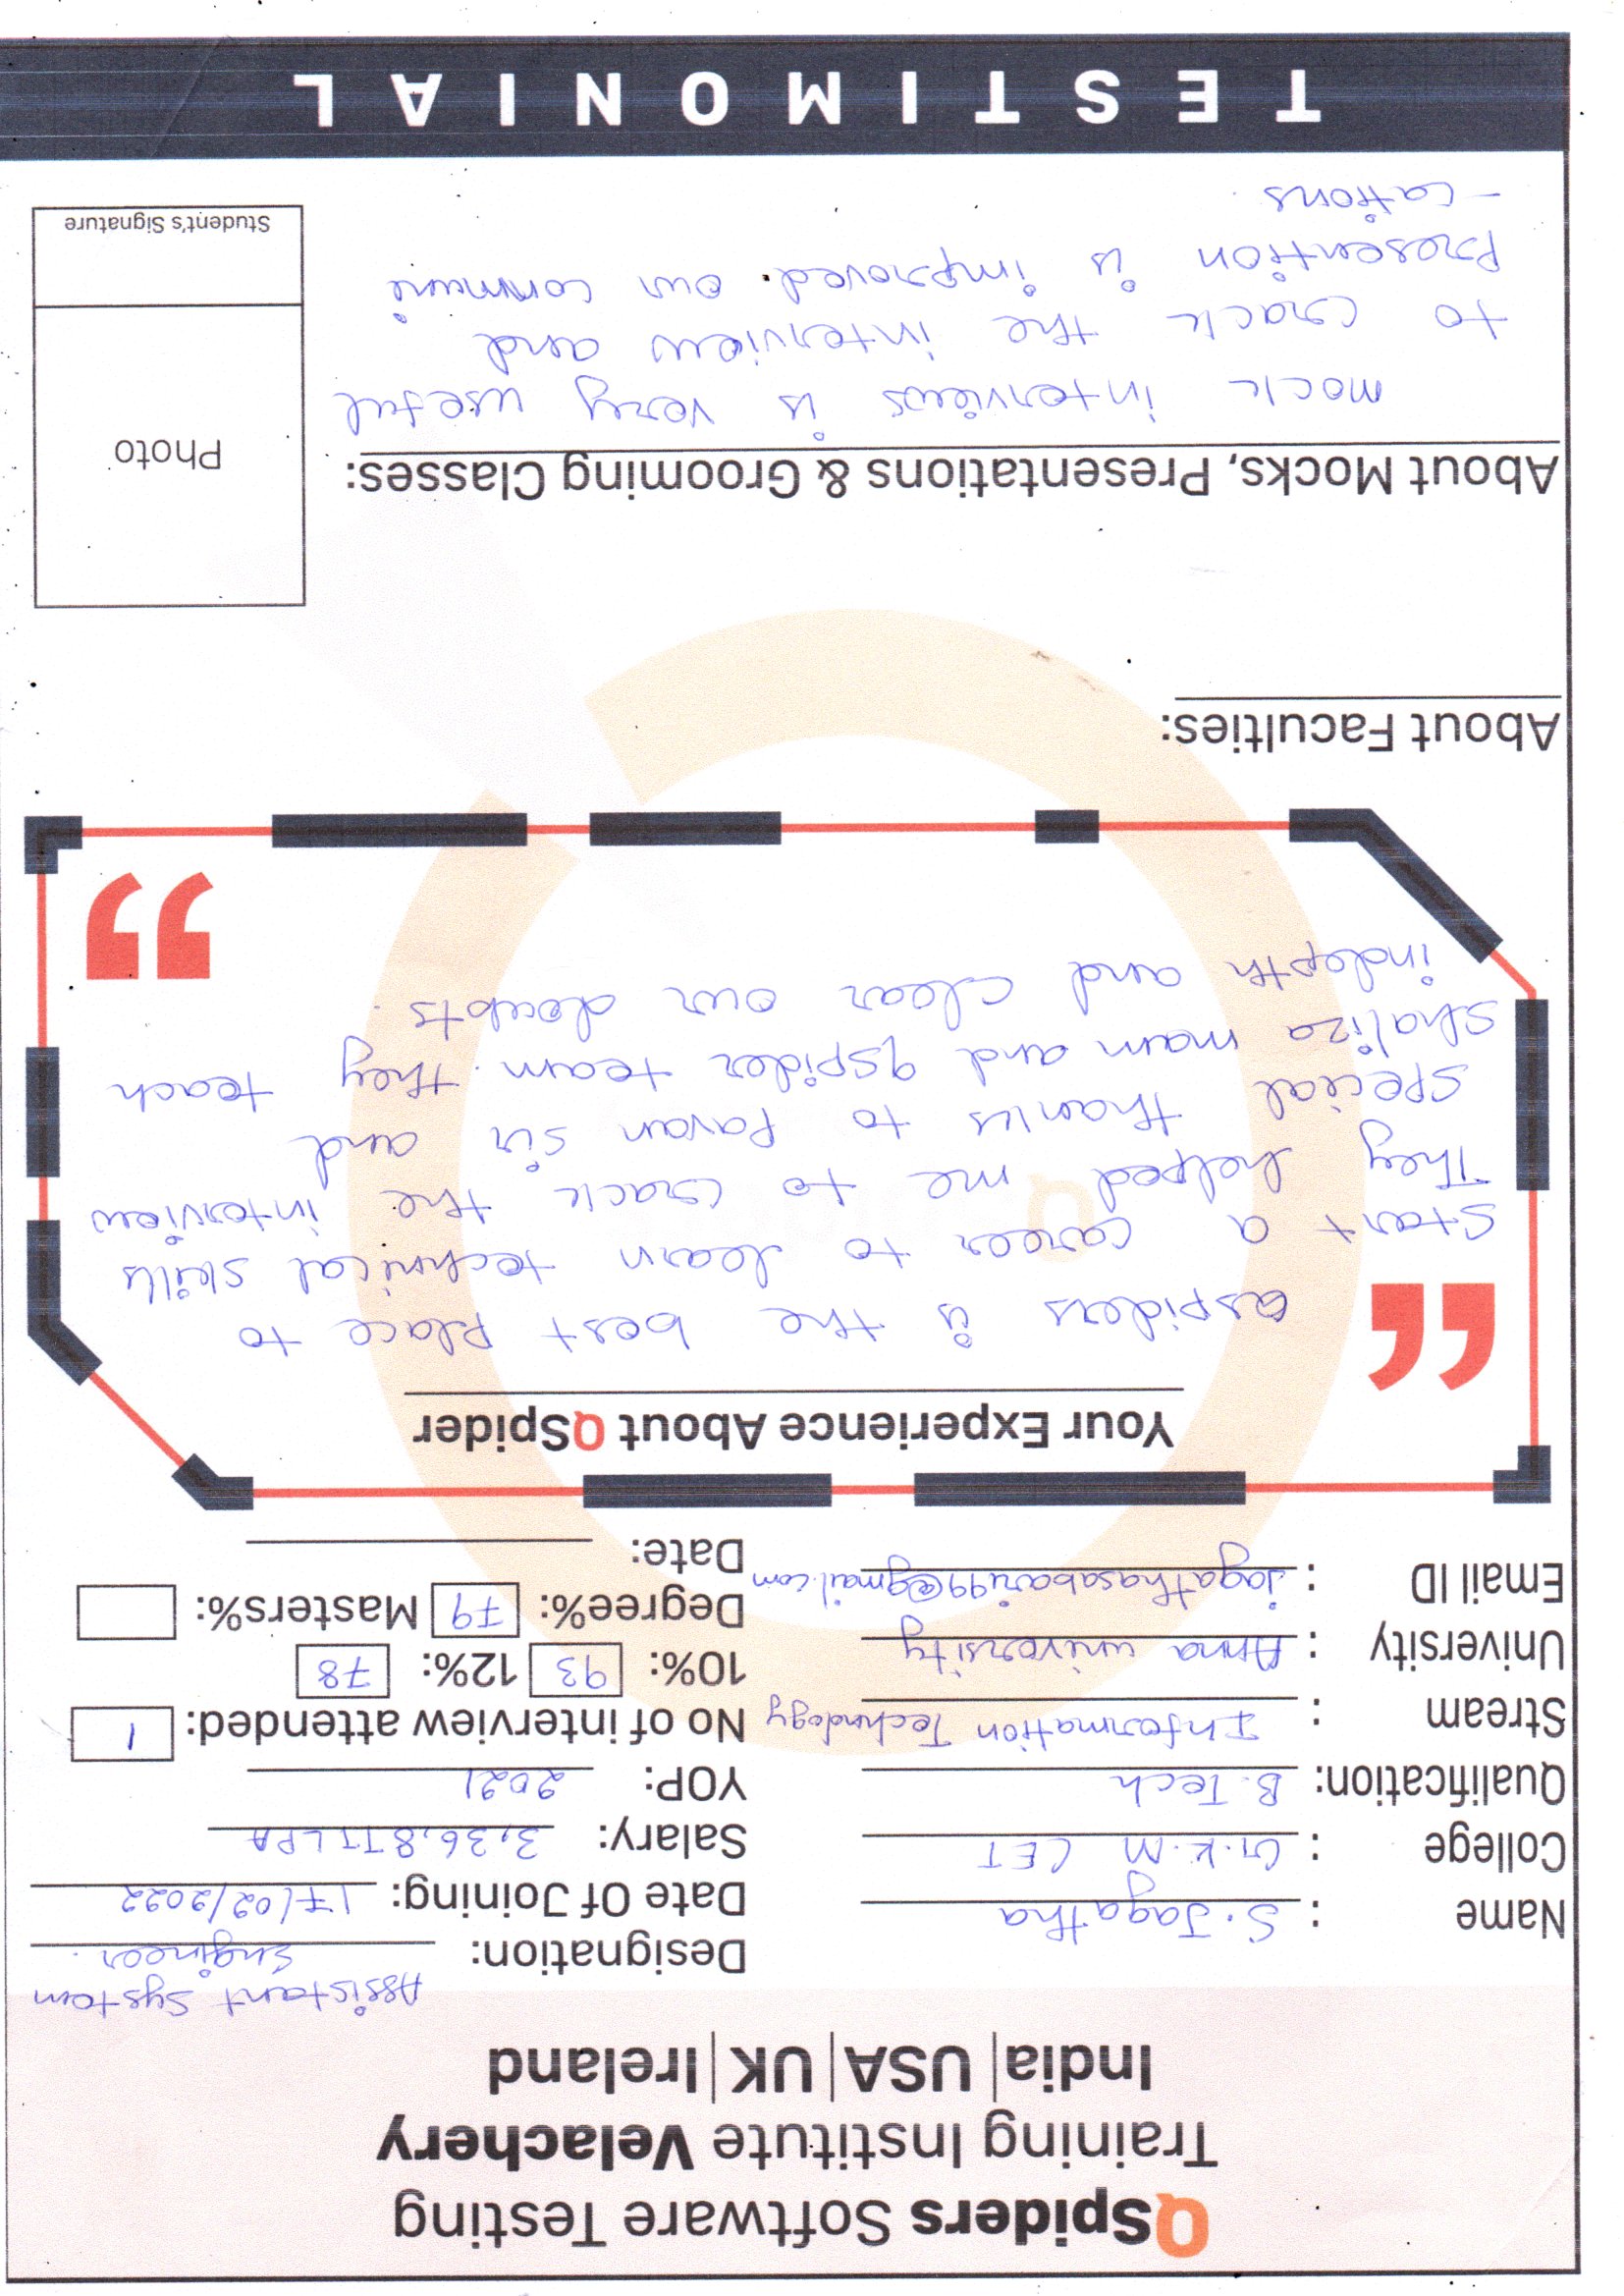 QSpiders Software Testing
Training Institute Velachery
India|USA|UK|Ireland
Name : S. Jagatha
College : G.K.M CET
Qualification: B.Tech
Stream : Information Technology
University : Anna university
Email ID : jagathasabari99@gmail.com
Designation: Assistant System
Engineer.
Date Of Joining: 17/02/2022
Salary: 3,36,877 LPA
YOP: 2021
No of interview attended: 1
10%: 93 12%: 78
Degree%: 79 Masters%:
Date:
Your Experience About QSpider
“
Qspiders is the best place to
Start a career to learn technical skills
They helped me to crack the interview
special thanks to Pavan sir and
shaliza mam and qspider team. they teach
indepth and clear our doubts.
”
About Faculties:
About Mocks, Presentations & Grooming Classes:
mock interviews is very useful
to crack the interview and
presention is improved. our communi
-cations.
Photo
Student's Signature
TESTIMONIAL